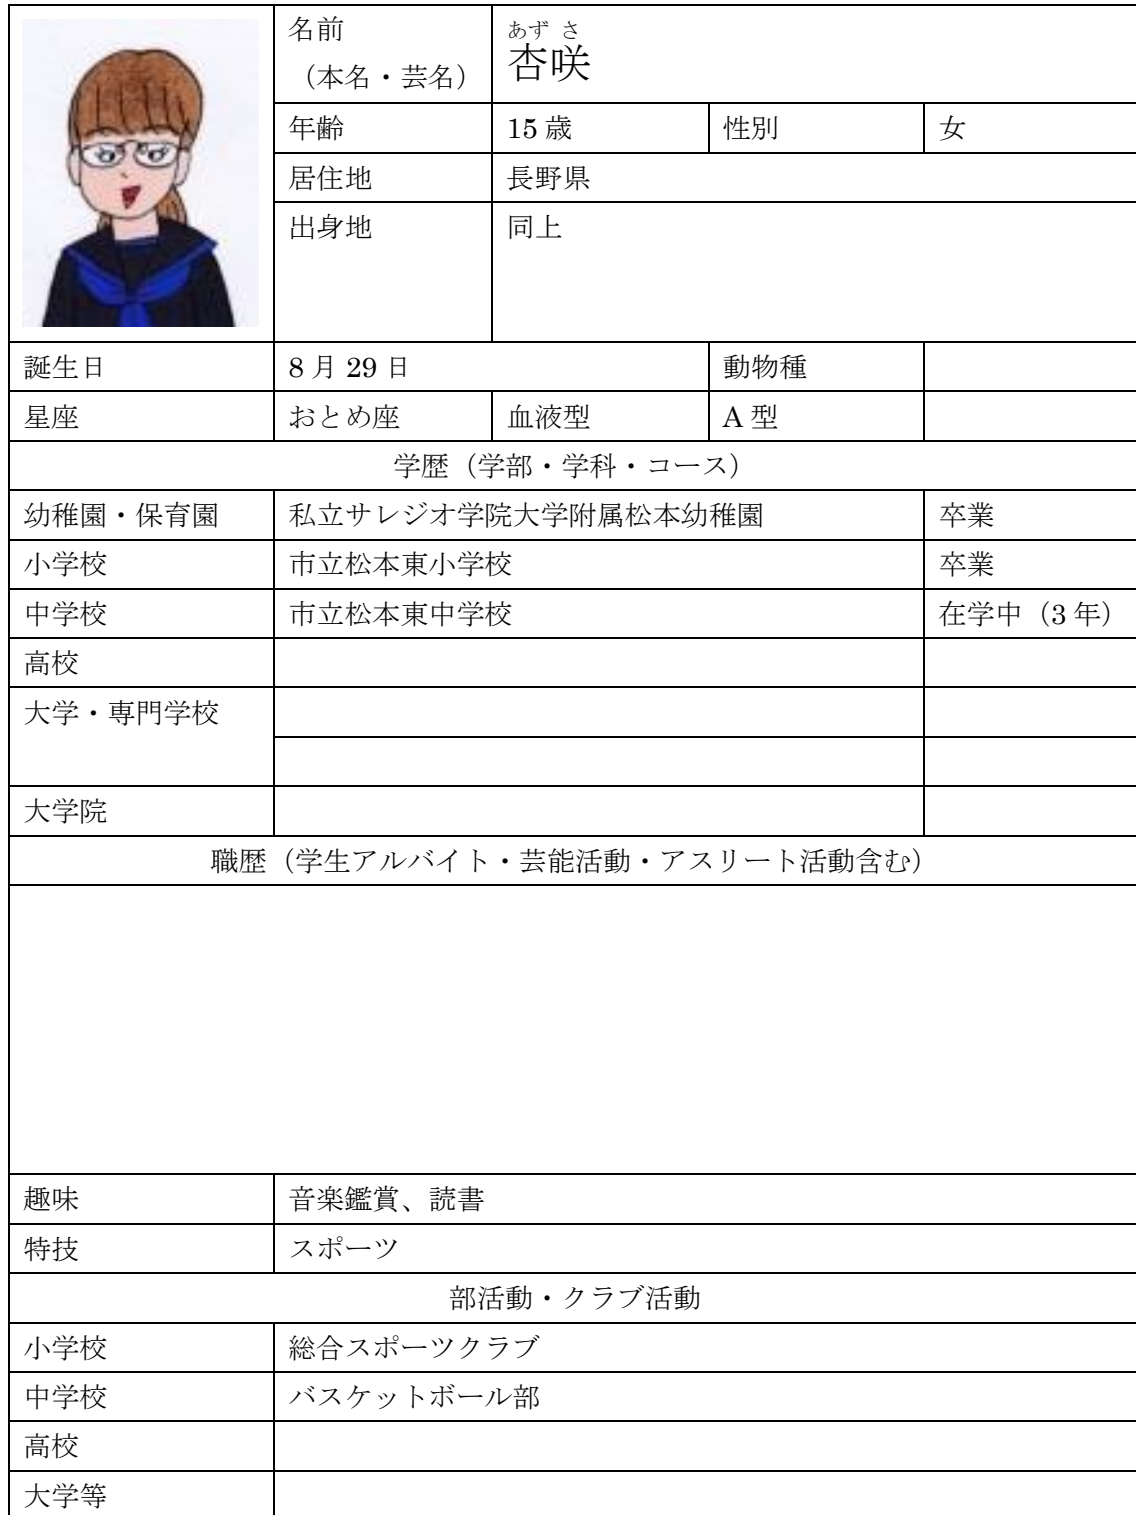 名前
(本名・芸名)
あずさ
杏咲
年齢 15歳 性別 女
居住地 長野県
出身地 同上
誕生日 8月29日 動物種
星座 おとめ座 血液型 A型
学歴(学部・学科・コース)
幼稚園・保育園 私立サレジオ学院大学附属松本幼稚園 卒業
小学校 市立松本東小学校 卒業
中学校 市立松本東中学校 在学中(3年)
高校
大学・専門学校
大学院
職歴(学生アルバイト・芸能活動・アスリート活動含む)
趣味 音楽鑑賞、読書
特技 スポーツ
部活動・クラブ活動
小学校 総合スポーツクラブ
中学校 バスケットボール部
高校
大学等